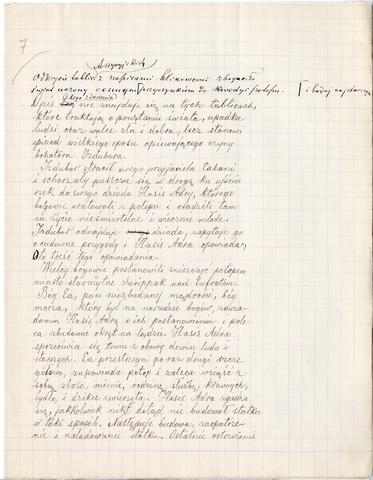 7
Assyryjskich
Odkrycie tablic z napisami klinowemi zbogaciło
świat uczony cennym przyczynkiem do kwestyi potopu. i bodaj najstarszym
tego zdarzenia
Opis nie znajduje się na tych tablicach,
które traktują o powstaniu świata, upadku
ludzi oraz walce zła i dobra, lecz stanowi
epizod wielkiego eposu opiewającego czyny
bohatera Izdubara.
Izdubar stracił swego przyjaciela Eabani
i schorzały puszcza się w drogę ku ujściu
rzek do swego dziada Hasis Adry, którego
bogowie uratowali z potopu i osadzili tam
na życie nieśmiertelne i wiecznie młode.
Izdubar odnajduje dziada, zapytuje go
o cudowne przygody i Hasis Adra opowiada,
Oto treść tego opowiadania.
Wielcy bogowie postanowili zniszczyć potopem
miasto starożytne Surippak nad Eufratem.
Bóg Ea, pan niezbadanej mądrości, bóg
morza, który był na naradzie bogów, zawia-
damia Hasis Adrę o ich postanowieniu i pole-
ca zbudować okręt na lądzie. Hasis Adra
sprzeciwia się temu z obawy drwin ludu i
starszych. Ea przestrzega po raz drugi szcze-
gółowo, zapowiada potop i zaleca wziąść z
sobą zboże, mienie, rodzinę, służbę, krewnych,
bydło i dzikie zwierzęta. Hasis Adra zgadza
się, jakkolwiek nikt dotąd nie budował statku
w taki sposób. Następuje budowa, zaopatrze-
nie i naładowanie statku. Ostatnie ostrzeżenie